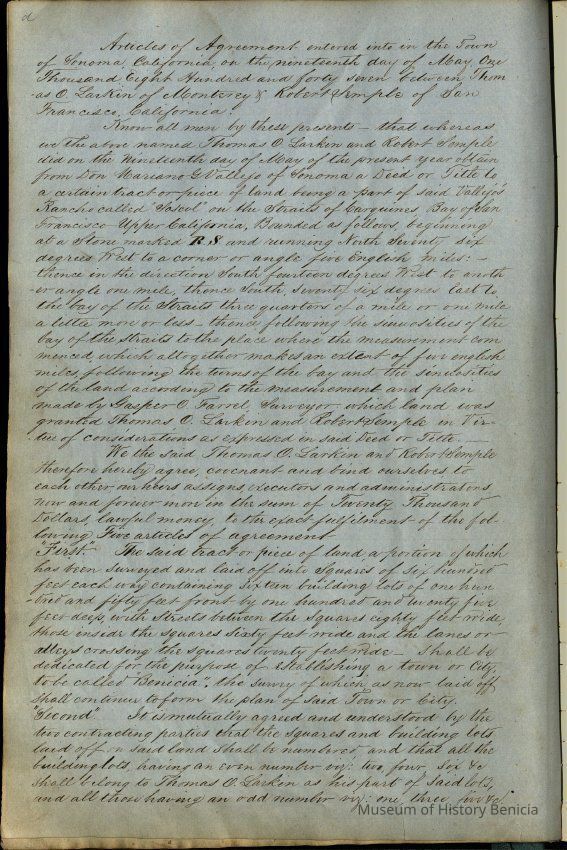 d
Articles of Agreement entered into in the Town
of Sonoma, California, on the nineteenth day of May, One
Thousand Eight Hundred and forty seven between Thom
as O. Larkin of Monterey & Robert Semple of San
Francisco, California.
Know all men by these presents — that whereas
we the above named Thomas O. Larkin and Robert Semple
did on the Nineteenth day of May of the present year obtain
from Don Mariano G Vallejo of Sonoma a Deed or Title to
a certain tract or piece of land being a part of said Vallejo's
Rancho called "Soscol" on the Straits of Carquines, Bay of San
Francisco Upper California, Bounded as follows, beginning
at a Stone marked R.S and running North Seventy six
degrees West to a corner or angle five English miles: —
thence in the direction South fourteen degrees West to anoth
er angle one mile, thence South, seventy six degrees East to,
the bay of the Straits three quarters of a mile or one mile
a little more or less — thence following the sinuosities of the
bay of the straits to the place where the measurement com
menced, which altogether makes an extent of five english
miles, following the turns of the bay and the sinuosities
of the land according to the measurement and plan
made by Gasper O. Farrel, Surveyor which land was
granted Thomas O. Larkin and Robert Semple in Vir-
tue of considerations as expressed in said Deed or Title. —
We the said Thomas O. Larkin and Robert Semple
therefore hereby agree, covenant and bind ourselves to
each other, our heirs assigns, executors and administrators,
now and forever more in the sum of Twenty Thousand
Dollars, lawful money, to the exact fulfilment of the fol-
lowing Five articles of agreement
"First" The said tract or piece of land a portion of which
has been surveyed and laid off into Squares of Six hundred
feet each way containing sixteen building lots of one hun
dred and fifty feet front by one hundred and twenty five
feet deep, with Streets between the squares eighty feet wide,
those inside the squares sixty feet wide and the lanes or
alleys crossing the squares twenty feet wide — Shall be
dedicated for the purpose of establishing a town or City,
to be called "Benicia", the survey of which as now laid off
shall continue to form the plan of said Town or City.
"Second" It is mutually agreed and understood by the
two contracting parties that the squares and building lots
laid off on said land shall be numbered and that all the
building lots, having an even number viz: two, four, six &c
shall belong to Thomas O. Larkin as his part of said lots,
and all those having an odd number viz: one, three, five &c
Museum of History Benicia